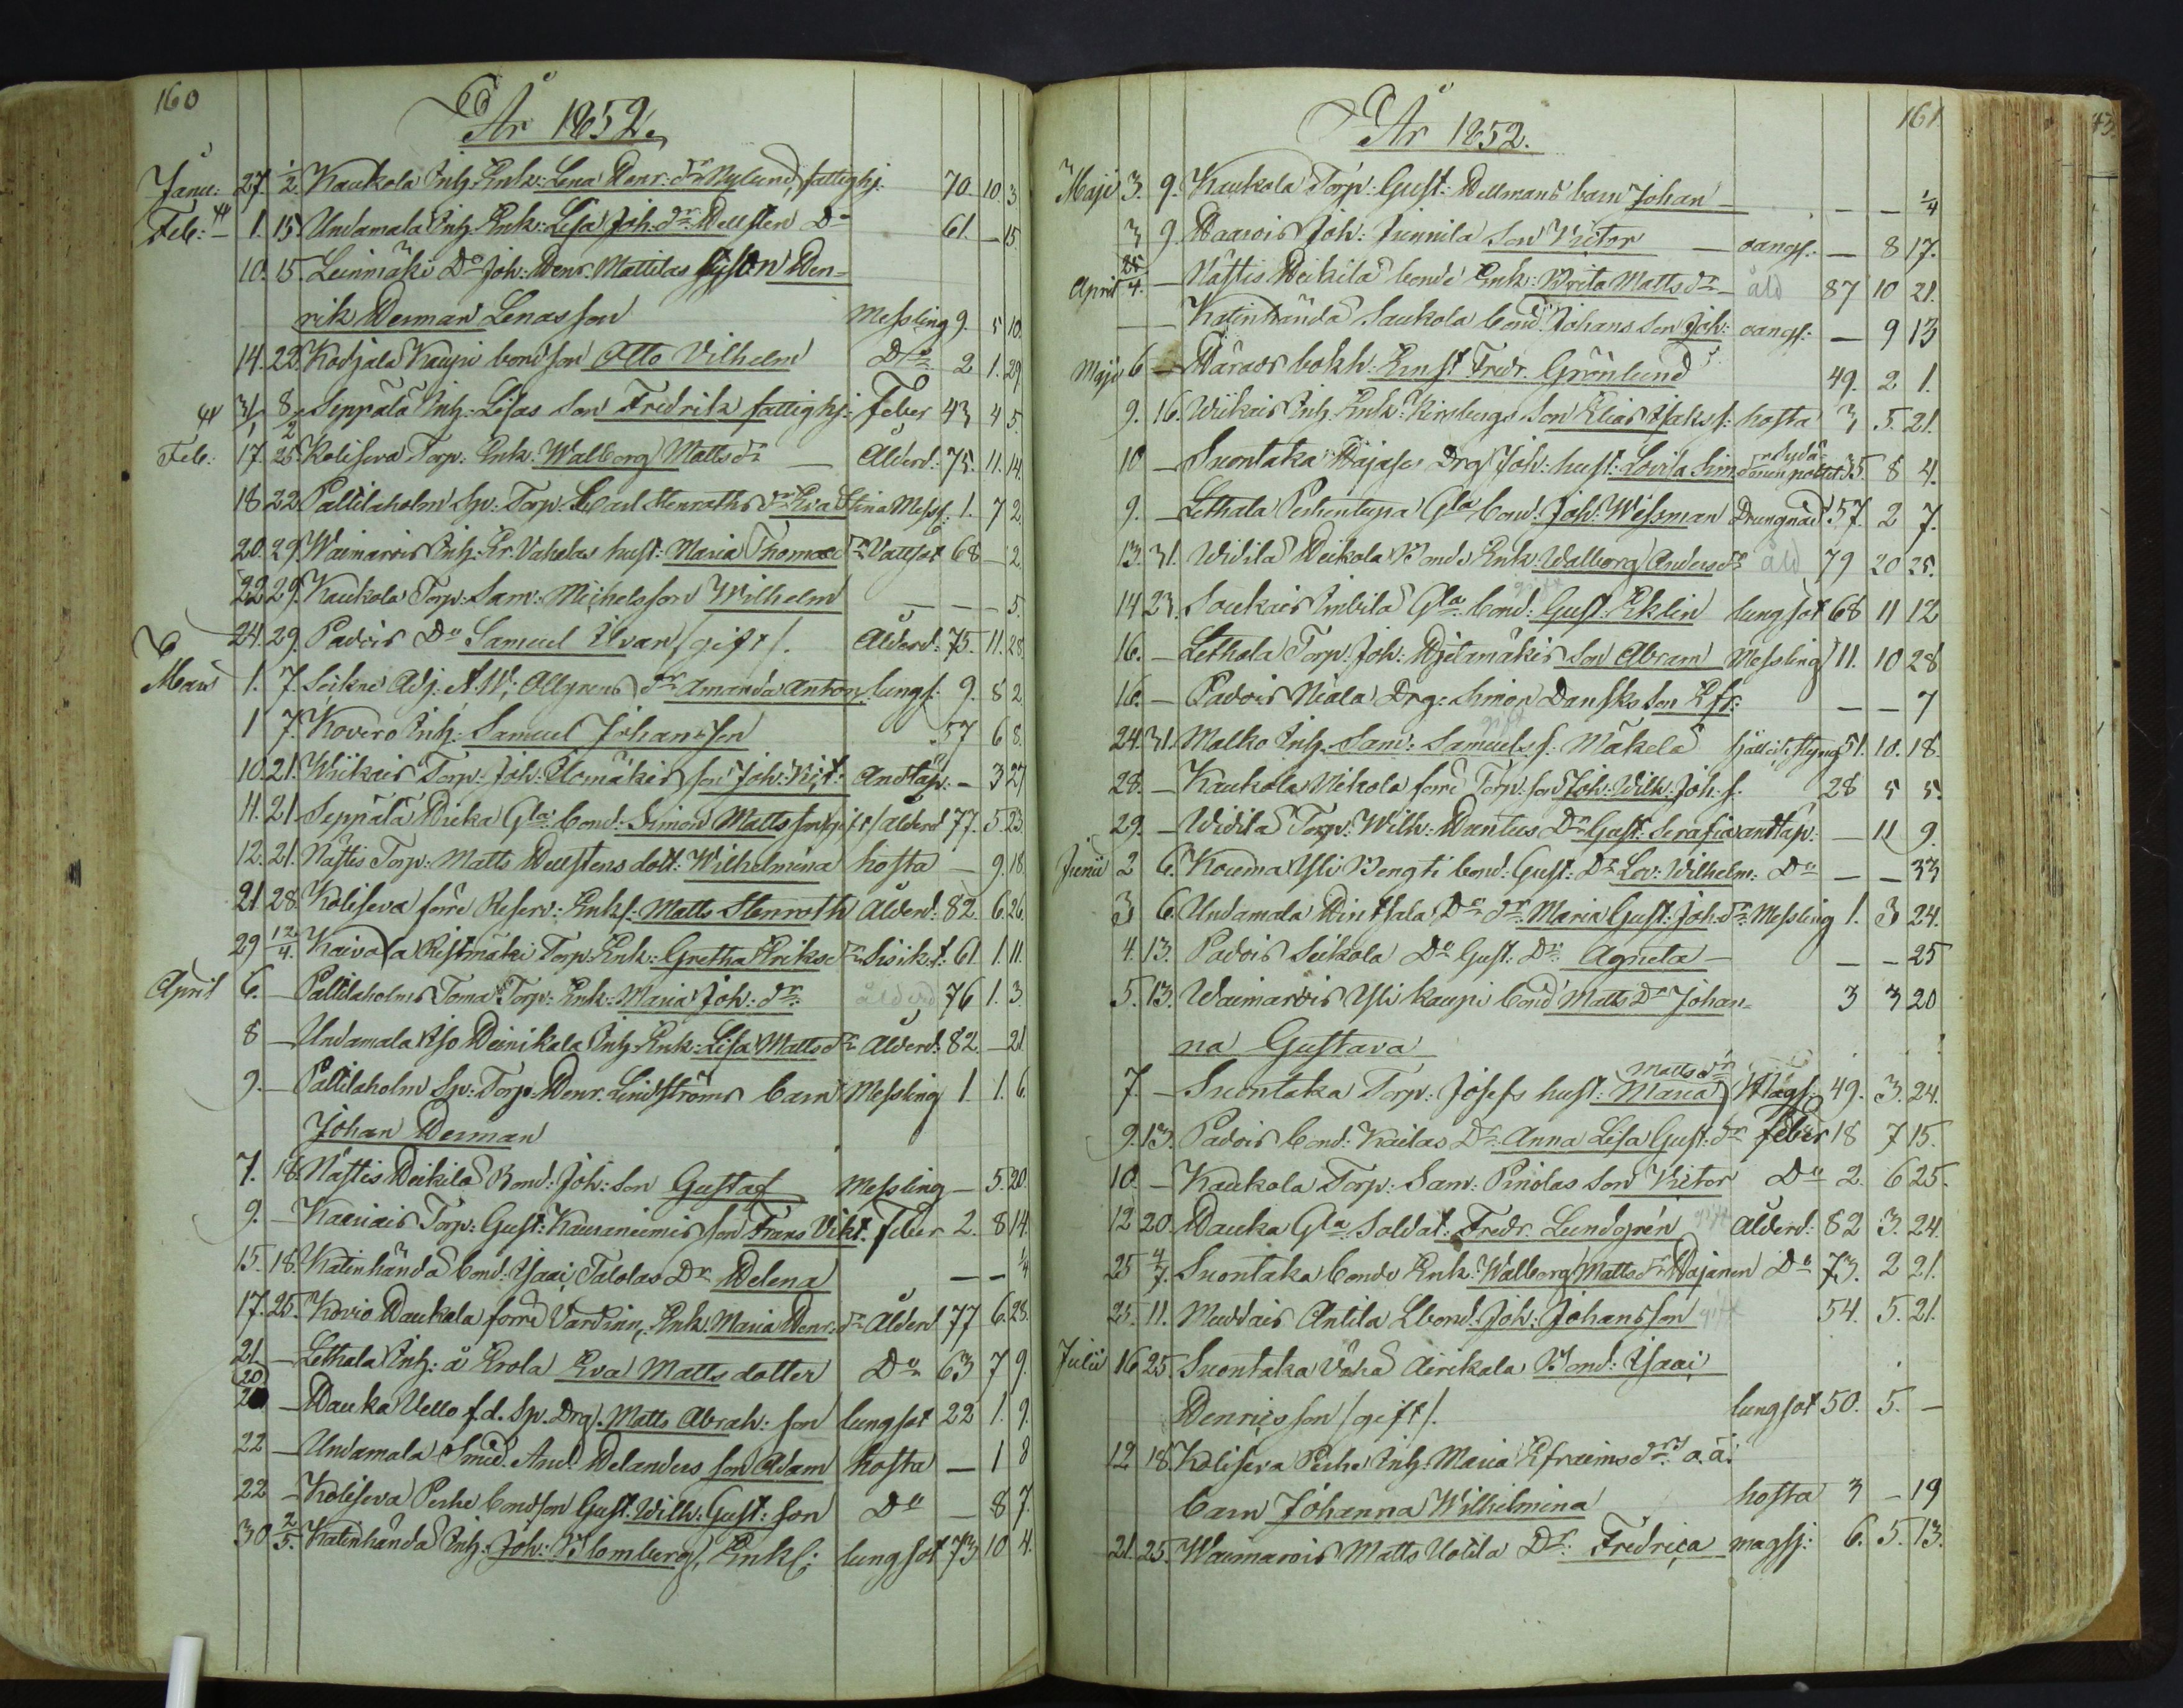 160
År 1852.
Janu: 27. 1/2. Kaukola Inh. Enk: Lena Henr: dr Nylund, fattighj. 70. 10. 3
Feb: 1. 15. Undamala Inh. Enk: Lisa Joh: dr Hellsten Do 61. — 15.
10. 15. Leinmäki Do Joh: Henr. Mattilas Hen-
rik Herman Lenas son Messling 9. 5 10.
14. 22. Kodjala Kaupi bond son Otto Vilhelm Do 2 1. 29
31/1 8/2 Seppälä Inh. Lisas son Fredrik fattighj. Feber 43 4 5.
Feb. 17. 25. Koliseva Torp. Enk. Walborg Matts dr — Ålderd: 75. 11. 14.
18 22 Paltilaholm Sp. Torp. Carl Stenroths dr Eva Stina Messl: 1. 7 2.
20. 29. Waimarois Inh. Er. Vahelas hust: Maria Thomae dr Vattsot 68 — 2.
22 29. Kaukola Torp. Sam: Michelsson Wilhelm — — — 5.
24. 29. Padois Do Samuel Alvan /gift/. Ålderd: 75. 11. 28.
Mars 1. 7. Seikne Adj: A.W. Allgrens dr Amanda Anton. lungs. 9. 8 2
1 7. Kovero Inh. Samuel Johansson 57 6 8.
10. 21. Wiikais Torp. Joh: Uomäkis son Joh: Vikt: Andtäp: — 3 27
11. 21. Seppälä Heika Gla bond: Simon Matts son /gift/ ålderd 77. 5. 23.
12. 21. Nästis Torp: Matts Hellstens dott: Wilhelmina hosta — 9. 18.
21. 28. Koliseva förre Reserv: Enkl. Matts Stenroth Ålderd: 82. 6. 26.
29 12/4. Kaivola Ristmäki Torp. Enk: Gretha Eriks dr 61. 1. 11.
April 6. — Paltilaholms Toma Torp: Enk: Maria Joh: dr. ålderd 76 1. 3.
8 — Undamala Iso Heinikala Inh. Enk: Lisa Matts dr Ålderd: 82. — 21
9. — Paltilaholm Sp: Torp: Henr. Lindströms barn Messling 1 1. 6.
Johan Herman
7. 18. Nästis Heikilä Bond: Joh: son Gustaf Messling — 5. 20.
9. — Kaenais Torp: Gust: Kauraniemis son Frans Vikt. Feber 2. 8 14.
15. 18. Katinhända bond: Isaac Talolas Dr Helena — — 1/4
17. 25. Kovio Haukala förre Värdinn, Enk. Maria Henr: dr Ålderd 77 6. 28.
21 — Lethala Inh: å Erola Eva Matts dotter Do 63 7 9.
(20) — Hauka Uello f.d. Sp. Drg. Matts Abrah: son lungsot 22 1. 9.
22 — Undamala Smed. And. Helanders son Adam hosta — 1 8
22 — Koliseva Perhe bondson Gust: Wilh: Gust: son Do — 8 7.
30 2/5. Katinhända Inh. Joh: Blomberg, Enkl: lungsot 73 10 4.
161
År 1852.
Maji 3. 9. Kaukola Torp: Gust: Hellmans barn Johan — — — 1/4
3 9. Haarois Joh: Junnila son Victor — oangf: — 8 17.
April 25/4. — Nästis Heikilä bonde Enk: Brita Matts dr — åld 87 10 21.
— — Katinhända Saukola bond. Johans son Joh: oangf: — 9 13
Maji 6 — Häraos bokh. Ernst Fredr. Grönlund 49. 2 1.
9. 16. Wiikais Inh. Enk: Kinnbergs son Elias Isaks s: hosta 3 5. 21.
10 — Suontaka Hajases Drg. Joh: hust: Lovisa Sim. dr 35 8 4.
9. — Lethala Perhentupa Gla bond: Joh: Wissman Drungnad 57. 2 7.
13. 31. Widilä Heikola Bonde Enk: Walborg Anders dr åld 79 20 25.
14 23. Soukais Gla bond: Gust: Eklin gift lungsot 68 11 12
16. — Lethala Torp: Joh: Hjelamäkis son Abram Messling 11. 10 28
16. — Padois Niala Drg. Simon Dansks son Efr: — — 7
24. 31. Malko Inh. Sam: Samuels s. Mäkelä gift 51. 10. 18.
28. — Kaukola Nikola förre Torp. son Joh: Wilh: Joh. s. 28 5 5.
29. — Widilä Torp. Wilh: Hentus Dr Gust: Serafia andtäp: — 11 9.
Junii 2 6. Kouma Yli Bengti bond: Gust: Dr Lov: Wilhelm: Do — — 33
3 6. Undamala Hintsala Do dr Maria Gust: Joh: dr. Messling 1. 3 24.
4. 13. Padois Seikola Do Gust. Dr. Agneta — — — 25
5. 13. Waimarois Yli Kaupi bond Matts Dr Johan- 3 3 20
na Gustava
7. — Suontaka Torp: Josefs hust: Maria Matts dr 49. 3. 24.
9. 13. Padois bond: Kailas Dr. Anna Lisa Gust: dr Feber 18 7 15.
10. — Kaukola Torp. Sam: Pinolas son Victor Do 2. 6 25.
12 20. Hauka Gla Soldat: Fredr. Lundgrén gift Ålderd: 82 3. 24.
25 4/7. Suontaka bonde Enk: Walborg Matts dr Hajanen Do 73. 2 21.
25. 11. Muddais Antila Lbond: Joh: Johansson gift 54. 5. 21.
Julii 16 25. Suontaka Vähä Äirikala Bond: Isaac
Henricsson /gift/. lungsot 50. 5. —
12 18. Koliseva Perhe Inh. Maria Efraims dr o. ä.
barn Johanna Wilhelmina hosta 3 — 19
21. 25. Waimarois Matts Uotila Dr: Fredrica magsj: 6. 5. 13.
43.